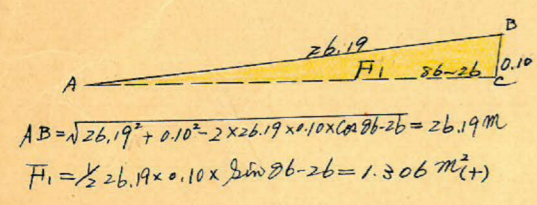 B
26.19
A F1 86-26 C 0.10
AB=√26.19²+0.10²-2×26.19×0.10×Cos 86-26=26.19m
F1=½ 26.19×0.10× Sin 86-26=1.306 m²(+)